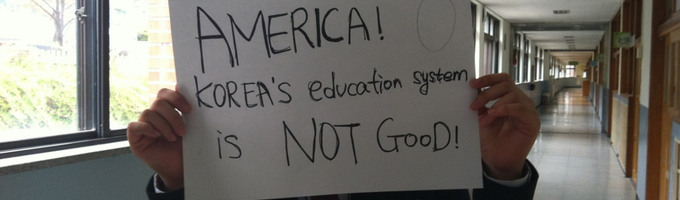 AMERICA!
KOREA'S education system
is NOT GooD!